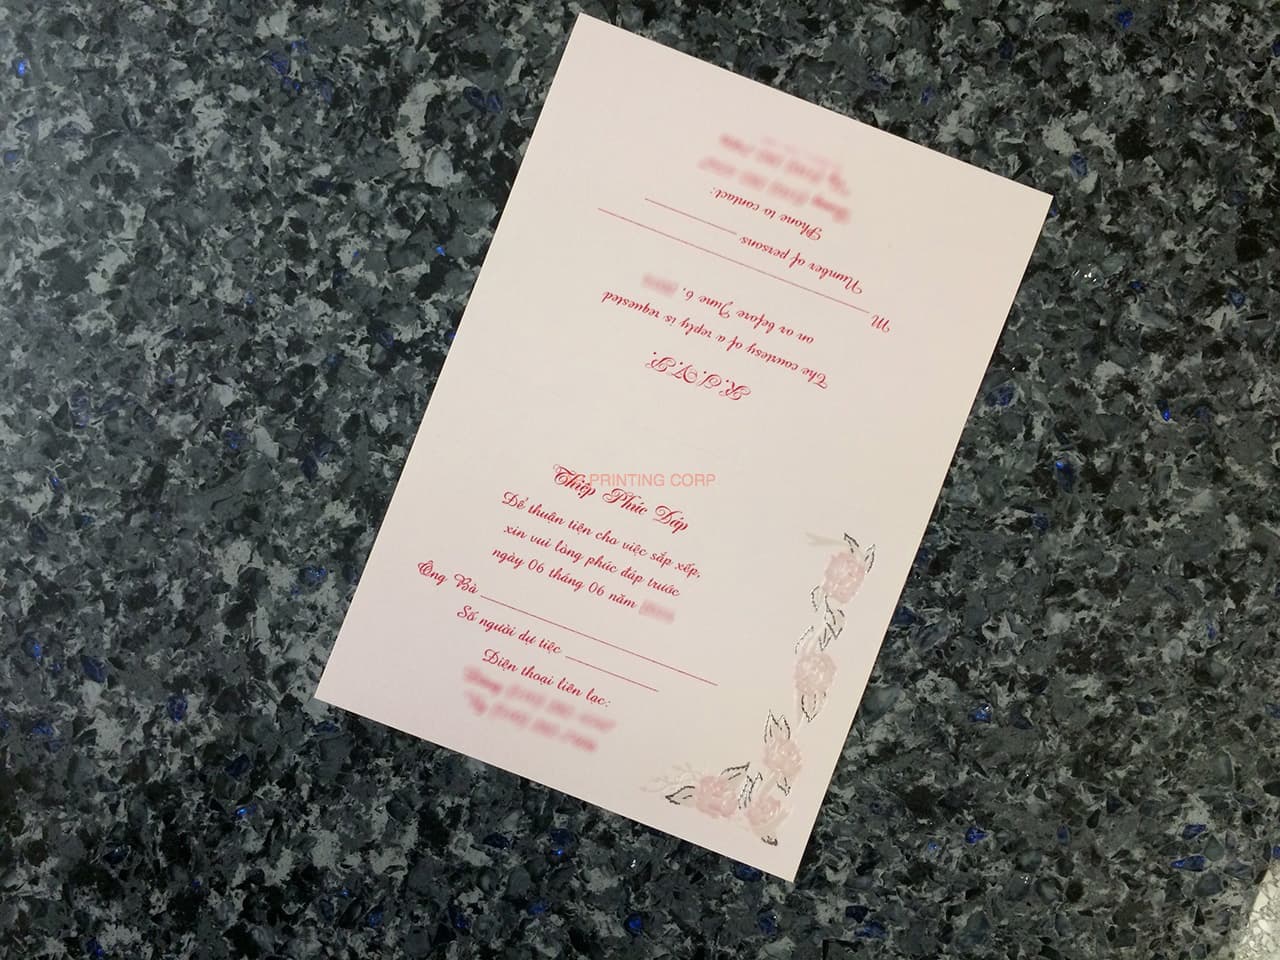 R.S.V.P.
The courtesy of a reply is requested
on or before June 6,
M
Number of persons
Phone to contact:
PRINTING CORP
Thiệp Phúc Đáp
Để thuận tiện cho việc sắp xếp,
xin vui lòng phúc đáp trước
ngày 06 tháng 06 năm
Ông Bà
Số người dự tiệc
Điện thoại liên lạc: